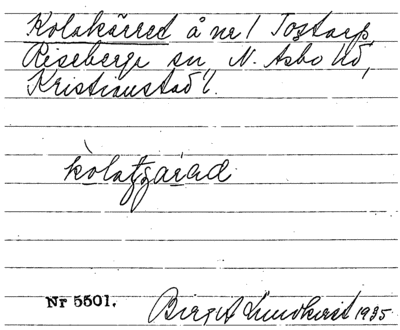 Kolakärret å nr 1 Tostarp,
Riseberga sn, N. Åsbo hd,
Kristianstad l.
Nr 5501. Birgit Lundkvist 1935